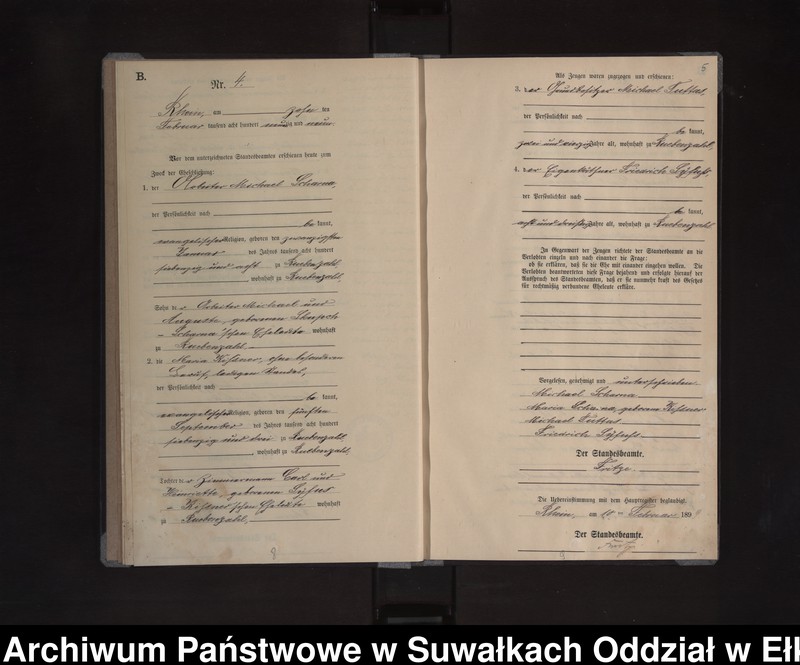 B.
Nr. 4.
Rhein, am zehn ten
Februar tausend acht hundert neunzig und neun
Vor dem unterzeichneten Standesbeamten erschienen heute zum
Zweck der Eheschließung:
1. der Arbeiter Michael Scharna,
der Persönlichkeit nach
be kannt,
evangelischer Religion, geboren den zwanzigsten
Januar des Jahres tausend acht hundert
siebenzig und acht zu Rübenzahl
, wohnhaft zu Rübenzahl,
Sohn der Arbeiter Michael und
Auguste, geborenen
Scharna'schen Eheleute wohnhaft
zu Rübenzahl
2. die Maria Keßner, ohne besonderen
Beruf, ledigen Standes,
der Persönlichkeit nach
be kannt,
evangelischer Religion, geboren den fünften
September des Jahres tausend acht hundert
siebenzig und drei zu Rübenzahl
, wohnhaft zu Rübenzahl,
Tochter der Zimmermann Carl und
Henriette, geborenen
Keßner'schen Eheleute wohnhaft
zu Rübenzahl,
8
5
Als Zeugen waren zugezogen und erschienen:
3. der Grundbesitzer Michael
der Persönlichkeit nach
be kannt,
Jahre alt, wohnhaft zu Rübenzahl,
4. der Eigenkäthner Friedrich
der Persönlichkeit nach
be kannt,
acht und dreißig Jahre alt, wohnhaft zu Rübenzahl
In Gegenwart der Zeugen richtete der Standesbeamte an die
Verlobten einzeln und nach einander die Frage:
ob sie erklären, daß sie die Ehe mit einander eingehen wollen. Die
Verlobten beantworteten diese Frage bejahend und erfolgte hierauf der
Ausspruch des Standesbeamten, daß er sie nunmehr kraft des Gesetzes
für rechtmäßig verbundene Eheleute erkläre.
Vorgelesen, genehmigt und unterschrieben
Michael Scharna
Maria Scharna, geborene Keßner
Michael
Friedrich
Der Standesbeamte.
Fritze
Die Uebereinstimmung mit dem Hauptregister beglaubigt.
Rhein, am 10ten Februar 1899
Der Standesbeamte.
Archiwum Państwowe w Suwałkach Oddział w Ełk